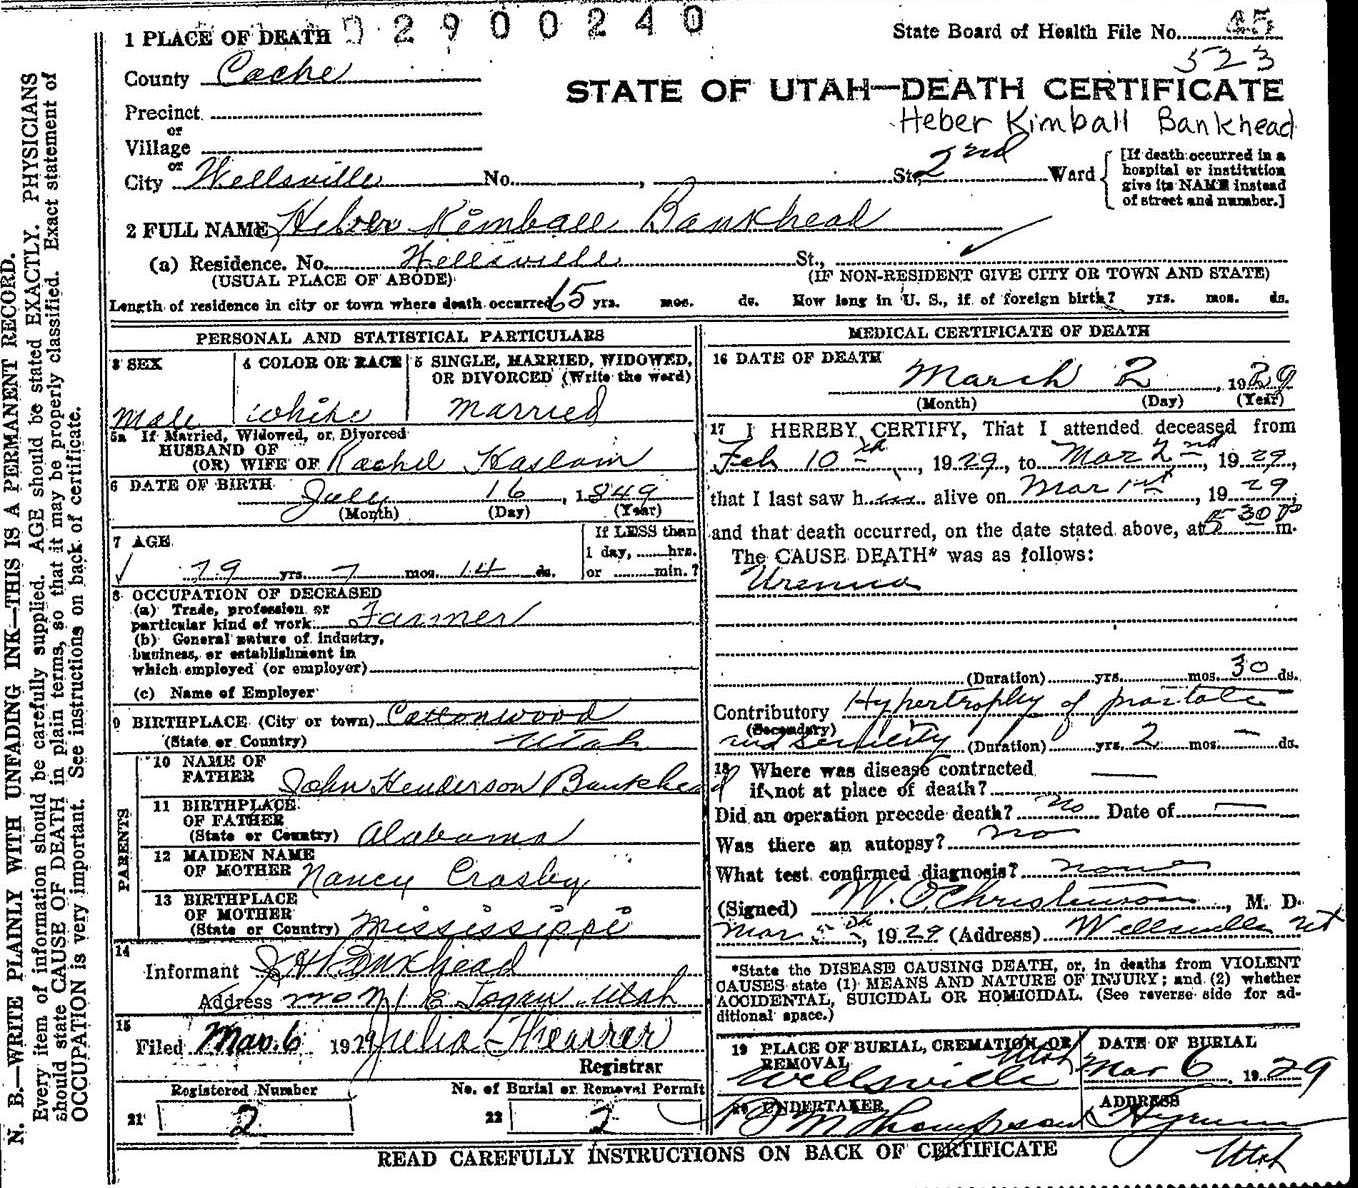 N. B.—WRITE PLAINLY WITH UNFADING INK—THIS IS A PERMANENT RECORD.
Every item of information should be carefully supplied. AGE should be stated EXACTLY. PHYSICIANS
should state CAUSE OF DEATH in plain terms, so that it may be properly classified. Exact statement of
OCCUPATION is very important. See instructions on back of certificate.
02900240
State Board of Health File No. 45
523
1 PLACE OF DEATH
County Cache
STATE OF UTAH—DEATH CERTIFICATE
Heber Kimball Bankhead
Precinct
or
Village
or
City Wellsville No. , St., 2nd Ward
[If death occurred in a
hospital or institution
give its NAME instead
of street and number.]
2 FULL NAME Heber Kimball Bankhead
(a) Residence. No. Wellsville St.,
(USUAL PLACE OF ABODE) (IF NON-RESIDENT GIVE CITY OR TOWN AND STATE)
Length of residence in city or town where death occurred 65 yrs. mos. ds. How long in U. S., if of foreign birth? yrs. mos. ds.
PERSONAL AND STATISTICAL PARTICULARS
3 SEX
Male
4 COLOR OR RACE
White
5 SINGLE, MARRIED, WIDOWED,
OR DIVORCED (Write the word)
Married
5a If Married, Widowed, or Divorced
HUSBAND OF
(OR) WIFE OF Rachel Haslam
6 DATE OF BIRTH July 16, 1849
(Month) (Day) (Year)
7 AGE
79 yrs. 7 mos. 14 ds.
If LESS than
1 day, hrs.
or min.?
8 OCCUPATION OF DECEASED
(a) Trade, profession or
particular kind of work Farmer
(b) General nature of industry,
business, or establishment in
which employed (or employer)
(c) Name of Employer
9 BIRTHPLACE (City or town) Cottonwood
(State or Country) Utah
PARENTS
10 NAME OF
FATHER John Henderson Bankhead
11 BIRTHPLACE
OF FATHER
(State or Country) Alabama
12 MAIDEN NAME
OF MOTHER Nancy Crosby
13 BIRTHPLACE
OF MOTHER
(State or Country) Mississippi
14
Informant J H Bankhead
Address E Logan Utah
15
Filed Mar. 6 1929 Julia
Registrar
Registered Number
21 2
No. of Burial or Removal Permit
22 2
MEDICAL CERTIFICATE OF DEATH
16 DATE OF DEATH
March 2, 1929
(Month) (Day) (Year)
17 I HEREBY CERTIFY, That I attended deceased from
Feb 10th, 1929, to Mar 2nd, 1929,
that I last saw h alive on Mar 1st, 1929,
and that death occurred, on the date stated above, at 5 30 P m.
The CAUSE DEATH* was as follows:
Uremia
(Duration) yrs. mos. 30 ds.
Contributory Hypertrophy of prostate
(Secondary)
and senility (Duration) yrs. 2 mos. — ds.
18 Where was disease contracted
if not at place of death? —
Did an operation precede death? no Date of —
Was there an autopsy? no
What test confirmed diagnosis? none
(Signed) W. O Christenson, M. D.
Mar 5th, 1929 (Address) Wellsville Ut
*State the DISEASE CAUSING DEATH, or, in deaths from VIOLENT
CAUSES state (1) MEANS AND NATURE OF INJURY; and (2) whether
ACCIDENTAL, SUICIDAL OR HOMICIDAL. (See reverse side for ad-
ditional space.)
19 PLACE OF BURIAL, CREMATION, OR
REMOVAL Utah
Wellsville
DATE OF BURIAL
Mar 6 1929
20 UNDERTAKER
M Thompson
ADDRESS
Hyrum
Utah
READ CAREFULLY INSTRUCTIONS ON BACK OF CERTIFICATE